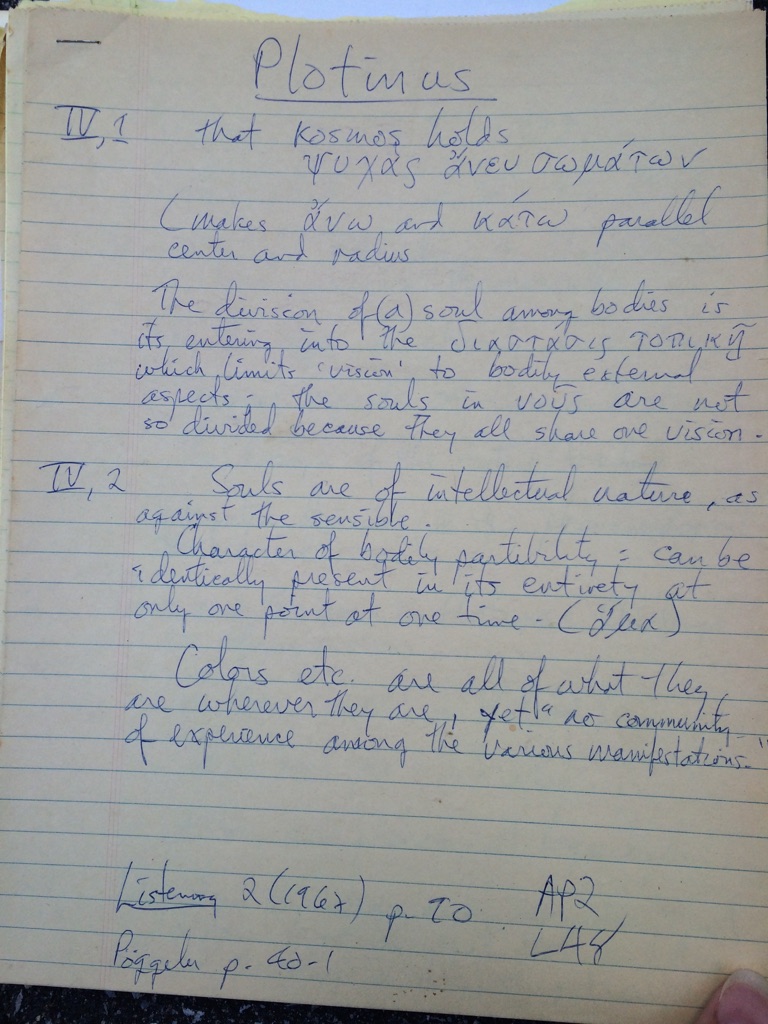 Plotinus
IV, 1 that kosmos holds
ψυχὰς ἄνευ σωμάτων
(makes ἄνω and κάτω parallel
center and radius
The division of (a) soul among bodies is
its entering into the διαστάσις τοπικῇ
which limits 'vision' to bodily external
aspects; the souls in νοῦς are not
so divided because they all share one vision.
IV, 2 Souls are of intellectual nature, as
against the sensible.
Character of bodily partibility = can be
identically present in its entirety at
only one point at one time. (ἅμα)
Colors etc. are all of what they
are wherever they are, yet "no community
of experience among the various manifestations."
Listening 2 (1967) p. 70 AP2
Pöggeler p. 40-1 L48